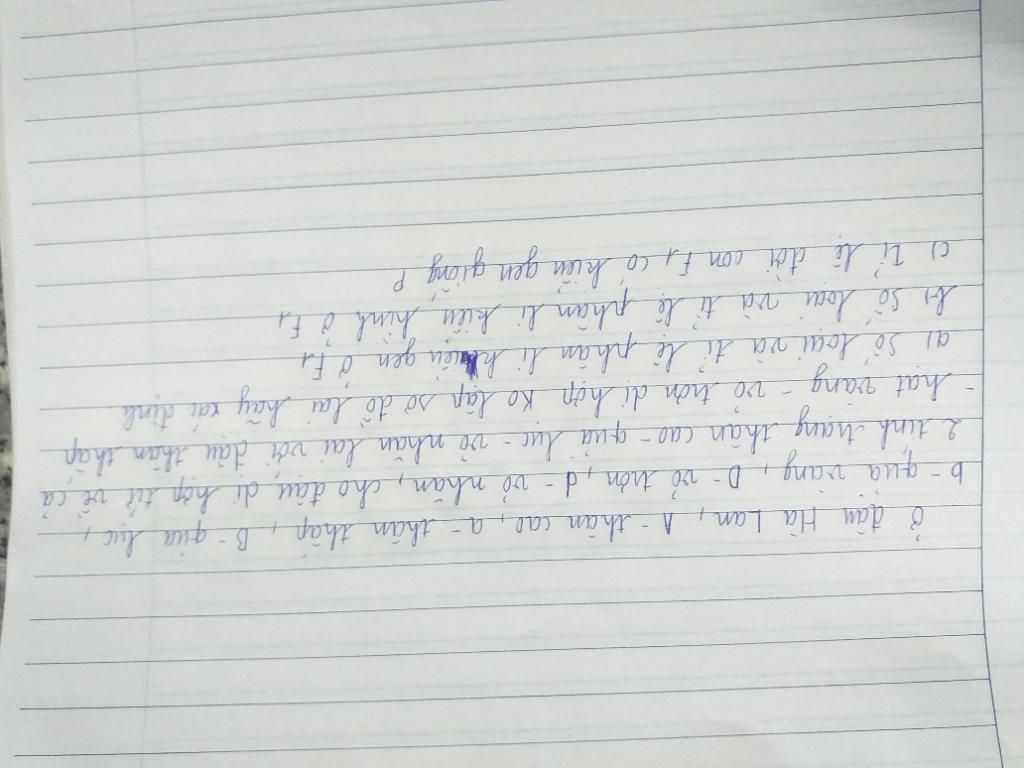 Ở đậu Hà Lan, A- thân cao, a- thân thấp, B- quả lục,
b- quả vàng, D- vỏ trơn, d- vỏ nhăn, cho đậu dị hợp tử về cả
2 tính trạng thân cao- quả lục- vỏ nhăn lai với đậu thân thấp
- hạt vàng- vỏ trơn dị hợp ko lập sơ đồ lai hãy xác định
a) số loại và tỉ lệ phân li kiểu gen ở F1
b) số loại và tỉ lệ phân li kiểu hình ở F1
c) tỉ lệ đời con F1 có kiểu gen giống P